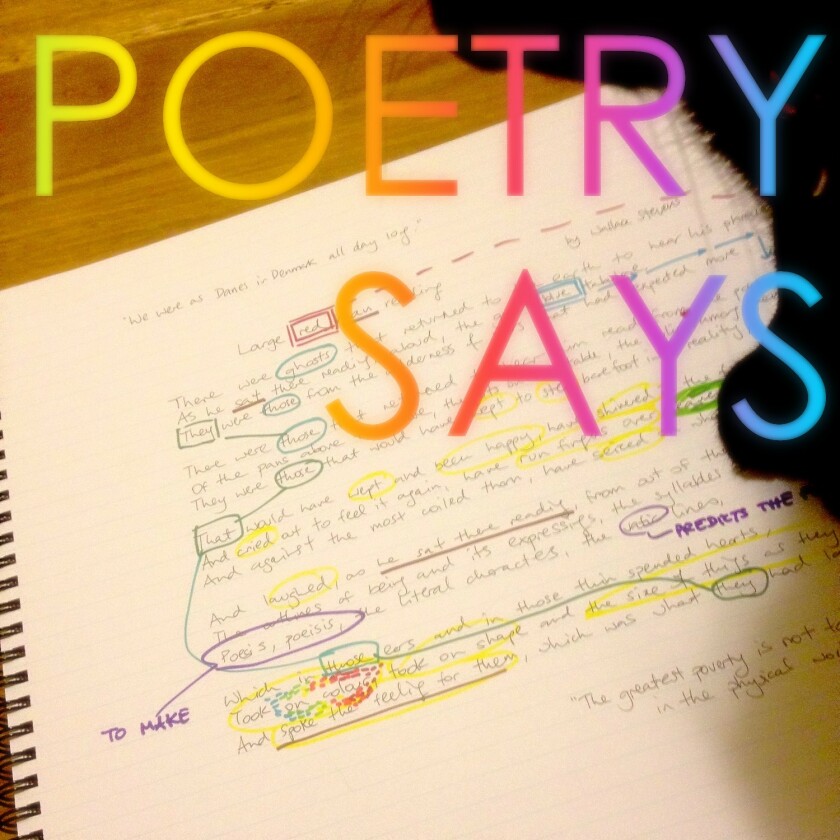 POETRY
SAYS
"We were as Danes in Denmark all day long."
by Wallace Stevens
Large red man reading
There were ghosts that returned to earth to hear his phrases
As he sat there reading, aloud, the
They were those from the wilderness of that had expected more
There were those that returned to hear him read from the
Of the pans above the stove, the
They were those that would have wept to step barefoot into reality
That would have wept and been happy, have shivered
And cried out to feel it again, have run fingers over
And against the most coiled thorn, have seized
And laughed, as he sat there reading, from out of the
The outlines of being and its expressings, the syllables
Poesis, poeisis, the literal characters, the vatic lines,
PREDICTS THE
TO MAKE
Which in those ears and in those thin, spended hearts,
Took on colour, took on shape and the size of things as they
And spoke the feeling for them, which was what they had
"The greatest poverty is not to
in the physical